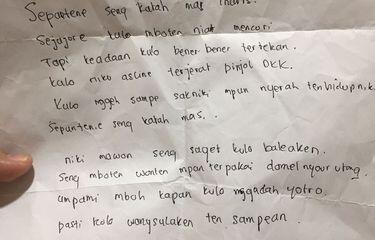 Sepuntene seng katah mas
Sejujore kulo mboten niat mencuri
Tapi keadaan kulo bener bener tertekan.
kulo niku asline terjerat pinjol OKK.
Kulo nggeh sampe sakniki mpun nyerah ten hidupniki
Sepunten.e seng katah mas. .
niki mawon seng saget kulo baleaken.
Seng mboten wonten mpun terpakai damel nyaur utag.
umpami mboh kapan kulo nggadah yotro.
pasti kulo wangsulaken ten sampean.